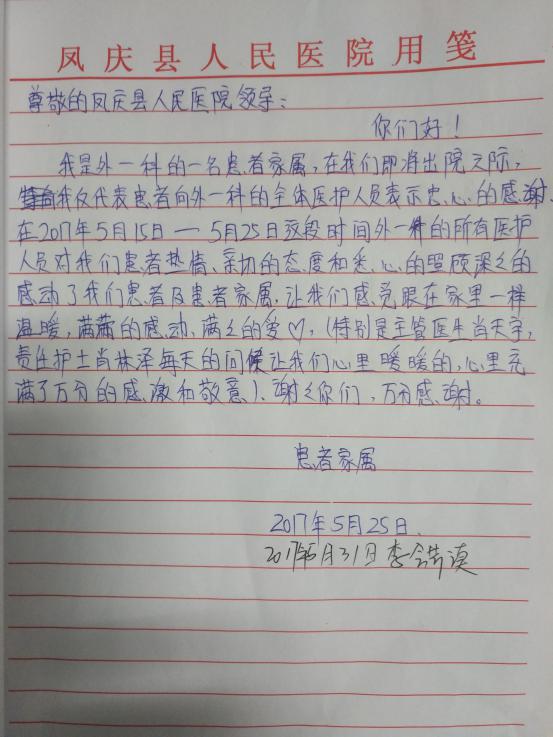 凤庆县人民医院用笺
尊敬的凤庆县人民医院领导:
你们好!
我是外一科的一名患者家属,在我们即将出院之际,
我仅代表患者向外一科的全体医护人员表示忠心的感谢.
在2017年5月15日—5月25日这段时间外一科的所有医护
人员对我们患者热情、亲切的态度和悉心的照顾深之的
感动了我们患者及患者家属,让我们感觉跟在家里一样
温暖,满满的感动,满之的爱♡,(特别是主管医生肖天宇,
责任护士肖林泽每天的问候让我们心里暖暖的,心里充
满了万分的感激和敬意)、谢之你们,万分感谢。
患者家属
2017年5月25日.
2017年5月31日 李